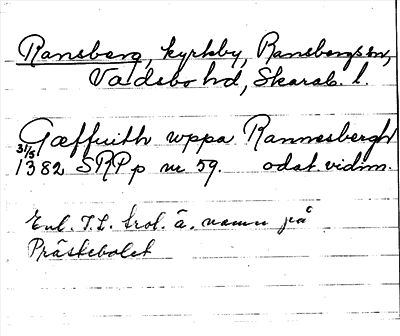 Ransberg, kyrkby, Ransbergs sn,
Vadsbo hd, Skarab. l.
Gæffuith uppa Rannesbergh
31/5 1382 SRP p nr 59. odat. vidim.
Enl. T.L. trol. ä. namn på
Prästebolet